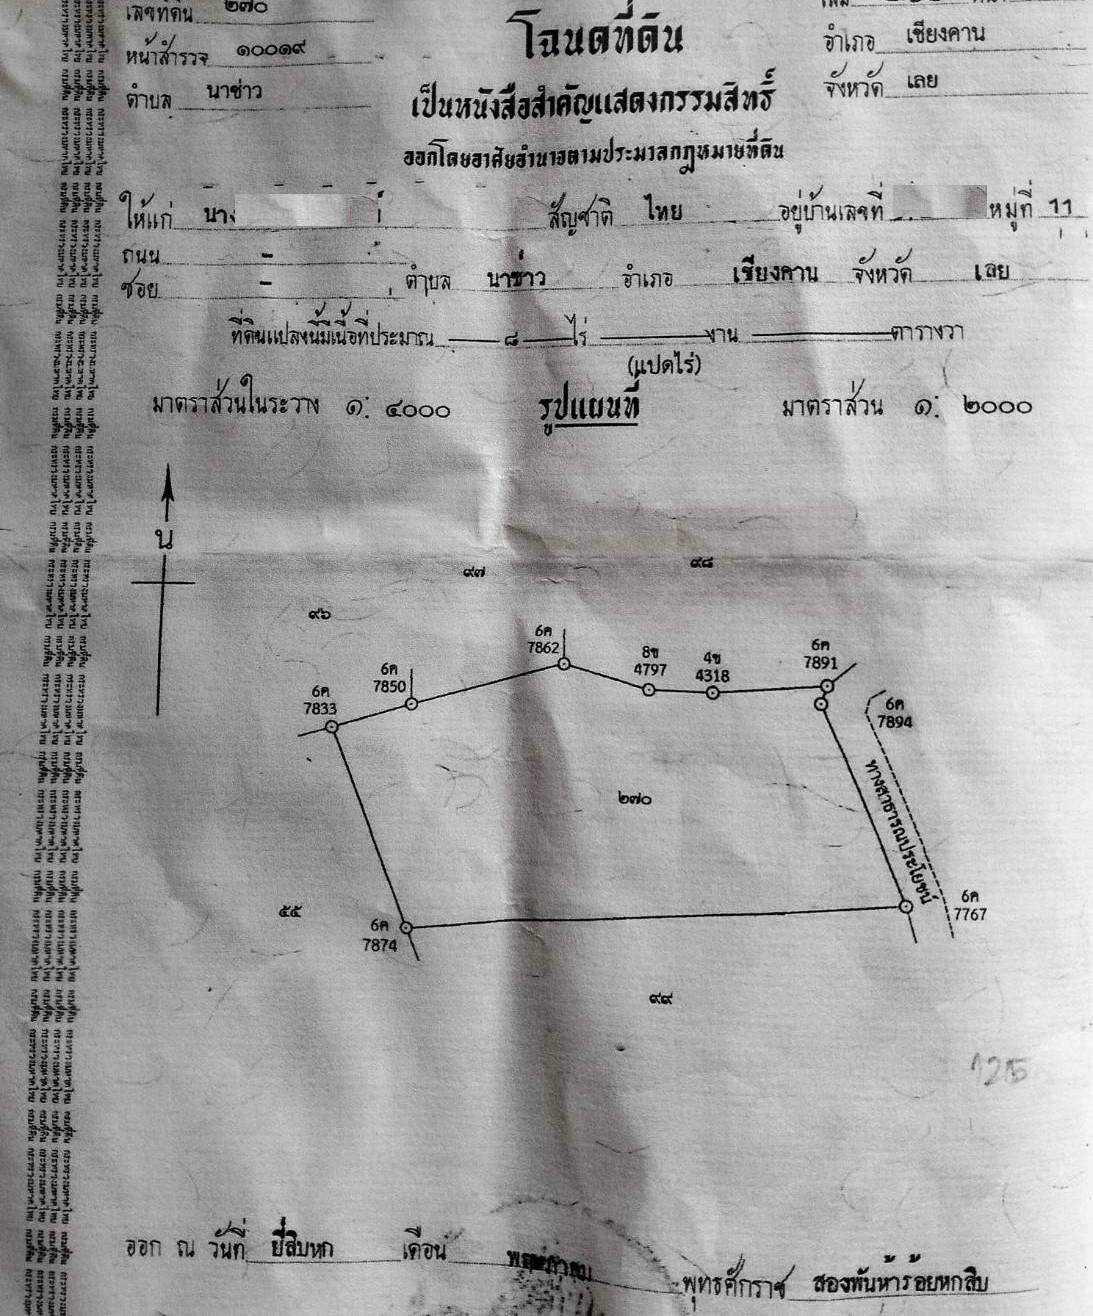 เลขที่ดิน ๒๗๐
หน้าสำรวจ ๑๐๐๑๙
ตำบล นาซ่าว
โฉนดที่ดิน
เป็นหนังสือสำคัญแสดงกรรมสิทธิ์
ออกโดยอาศัยอำนาจตามประมวลกฎหมายที่ดิน
อำเภอ เชียงคาน
จังหวัด เลย
ให้แก่ นาง สัญชาติ ไทย อยู่บ้านเลขที่ หมู่ที่ 11
ถนน -
ซอย - ตำบล นาซ่าว อำเภอ เชียงคาน จังหวัด เลย
ที่ดินแปลงนี้มีเนื้อที่ประมาณ ๘ ไร่ งาน ตารางวา
(แปดไร่)
มาตราส่วนในระวาง ๑: ๔๐๐๐ รูปแผนที่ มาตราส่วน ๑: ๒๐๐๐
น
๙๗
๙๘
๙๖
6ค
7862
8ข
4797
4ข
4318
6ค
7891
6ค
7850
6ค
7833
6ค
7894
ทางสาธารณประโยชน์
๒๗๐
๕๕
6ค
7874
6ค
7767
๙๙
125
ออก ณ วันที่ ยี่สิบหก เดือน พฤษภาคม พุทธศักราช สองพันห้าร้อยหกสิบ